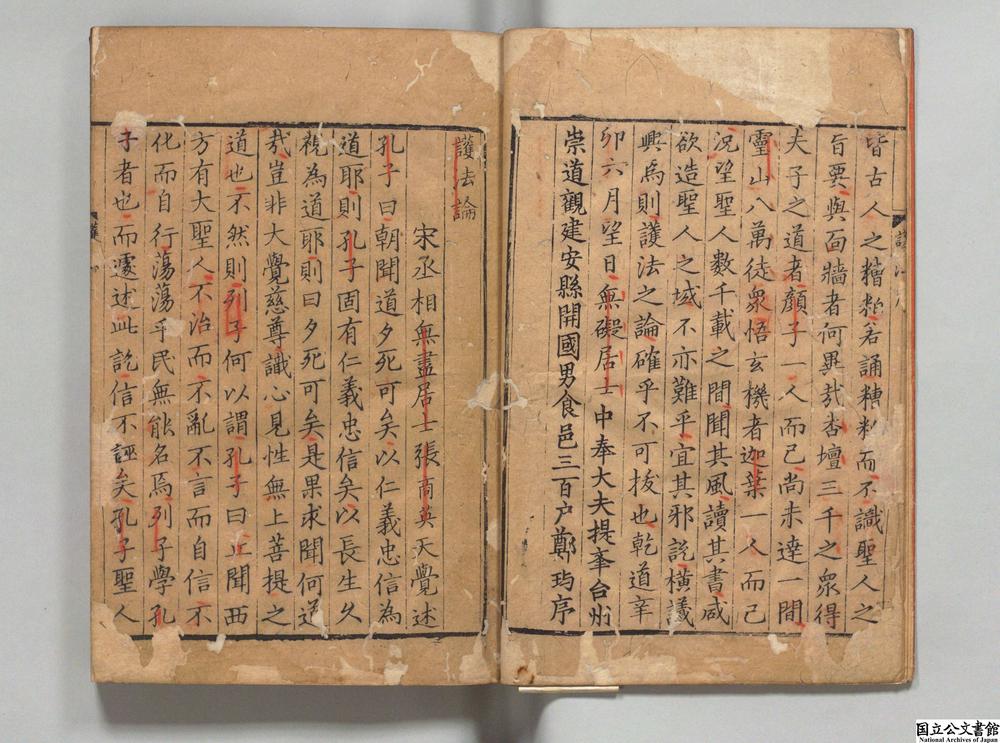 皆古人之糟粕若誦糟粕而不識聖人之
旨要與面牆者何異哉杏壇三千之衆得
夫子之道者顔子一人而已尚未達一間
靈山八萬徒衆悟玄機者迦葉一人而已
況望聖人數千載之間聞其風讀其書咸
欲造聖人之域不亦難乎宜其邪説横議
興焉則護法之論確乎不可拔也乾道辛
卯六月望日無礙居士中奉大夫提舉台州
崇道觀建安縣開國男食邑三百户鄭玙序
護法論
宋丞相無盡居士張商英天覺述
孔子曰朝聞道夕死可矣以仁義忠信為
道耶則孔子固有仁義忠信矣以長生久
視為道耶則曰夕死可矣是果求聞何道
哉豈非大覺慈尊識心見性無上菩提之
道也不然則列子何以謂孔子曰丘聞西
方有大聖人不治而不亂不言而自信不
化而自行蕩蕩乎民無能名焉列子學孔
子者也而遽述此説信不誣矣孔子聖人
国立公文書館
National Archives of Japan